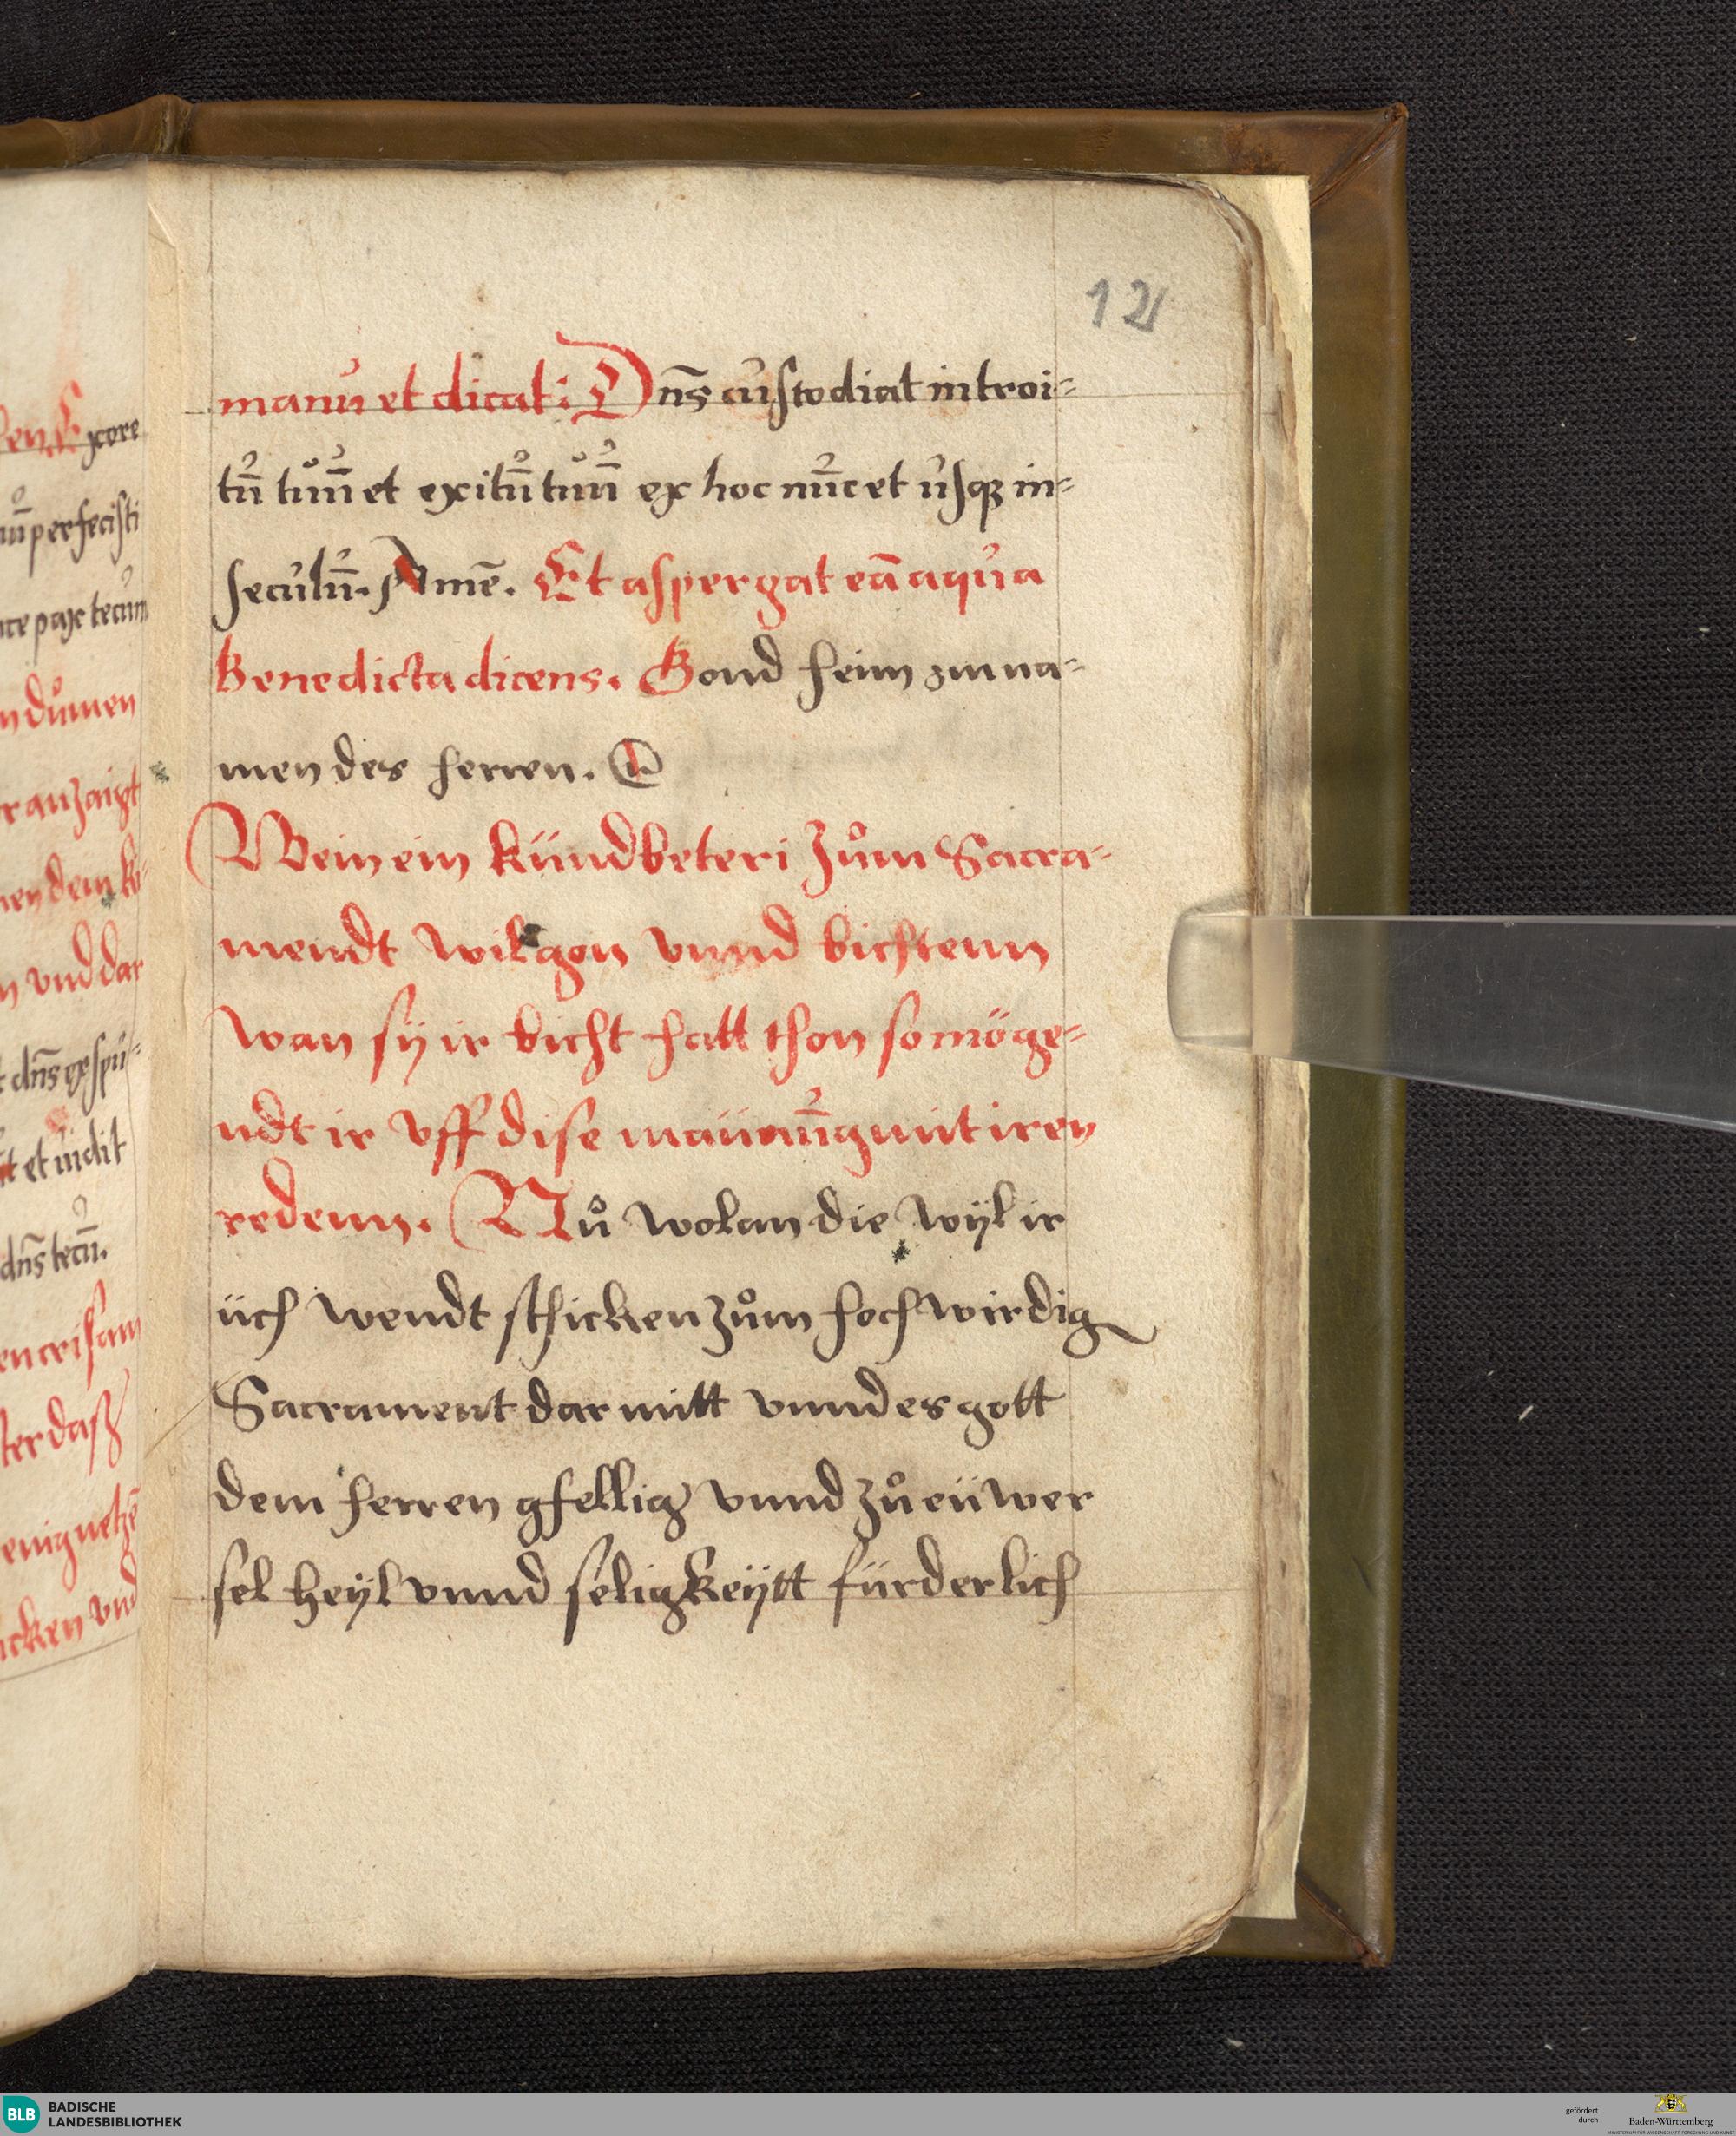 12
manu et dicat: Dn̄s custodiat introi=
tū tuū et exitū tuū ex hoc nūc et usqꝫ in=
seculū. Amē. Et aspergat eā aqua
Benedicta dicens. Gond heim zuͦ na=
men des herren.
Wein ein kündbeteri zuͦm Sacra-
mendt wil gon vnnd bichtenn
wan sÿ ir bicht hatt thon so möge=
ndt ir vff dise mit iren
redenn. Nuͦ wolan die wÿl ir
üch wendt schicken zuͦm hochwirdig
Sacrament dar mitt vnnd es gott
dem herren gfellig vnnd zuͦ eüwer
sel heÿl vnnd seligkeÿtt fürderlich
en. Expre
nū perfecisti
pax tecum
n duͦmen
r anzaigt
nen dem ki-
n vnd dar
t dn̄s expu=
et uidit
dn̄s tecū.
en crisam
ter dasz
enig netzē
icken vnd
BLB BADISCHE
LANDESBIBLIOTHEK
gefördert
durch
Baden-Württemberg
MINISTERIUM FÜR WISSENSCHAFT, FORSCHUNG UND KUNST